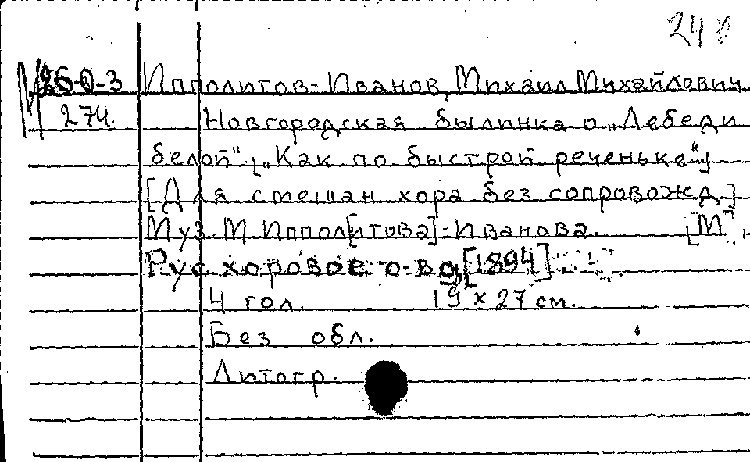 24
М 26-0-3 Ипполитов-Иванов, Михаил Михайлович
274. Новгородская былинка о „Лебеди
белой“ [„Как по быстрой реченьке“]
[Для смешан хора без сопровожд.]
Муз. М. Иппол[итова]-Иванова. [М],
Рус хоровое о-во, [1894]
4 гол. 19 x 27 см.
Без обл.
Литогр.